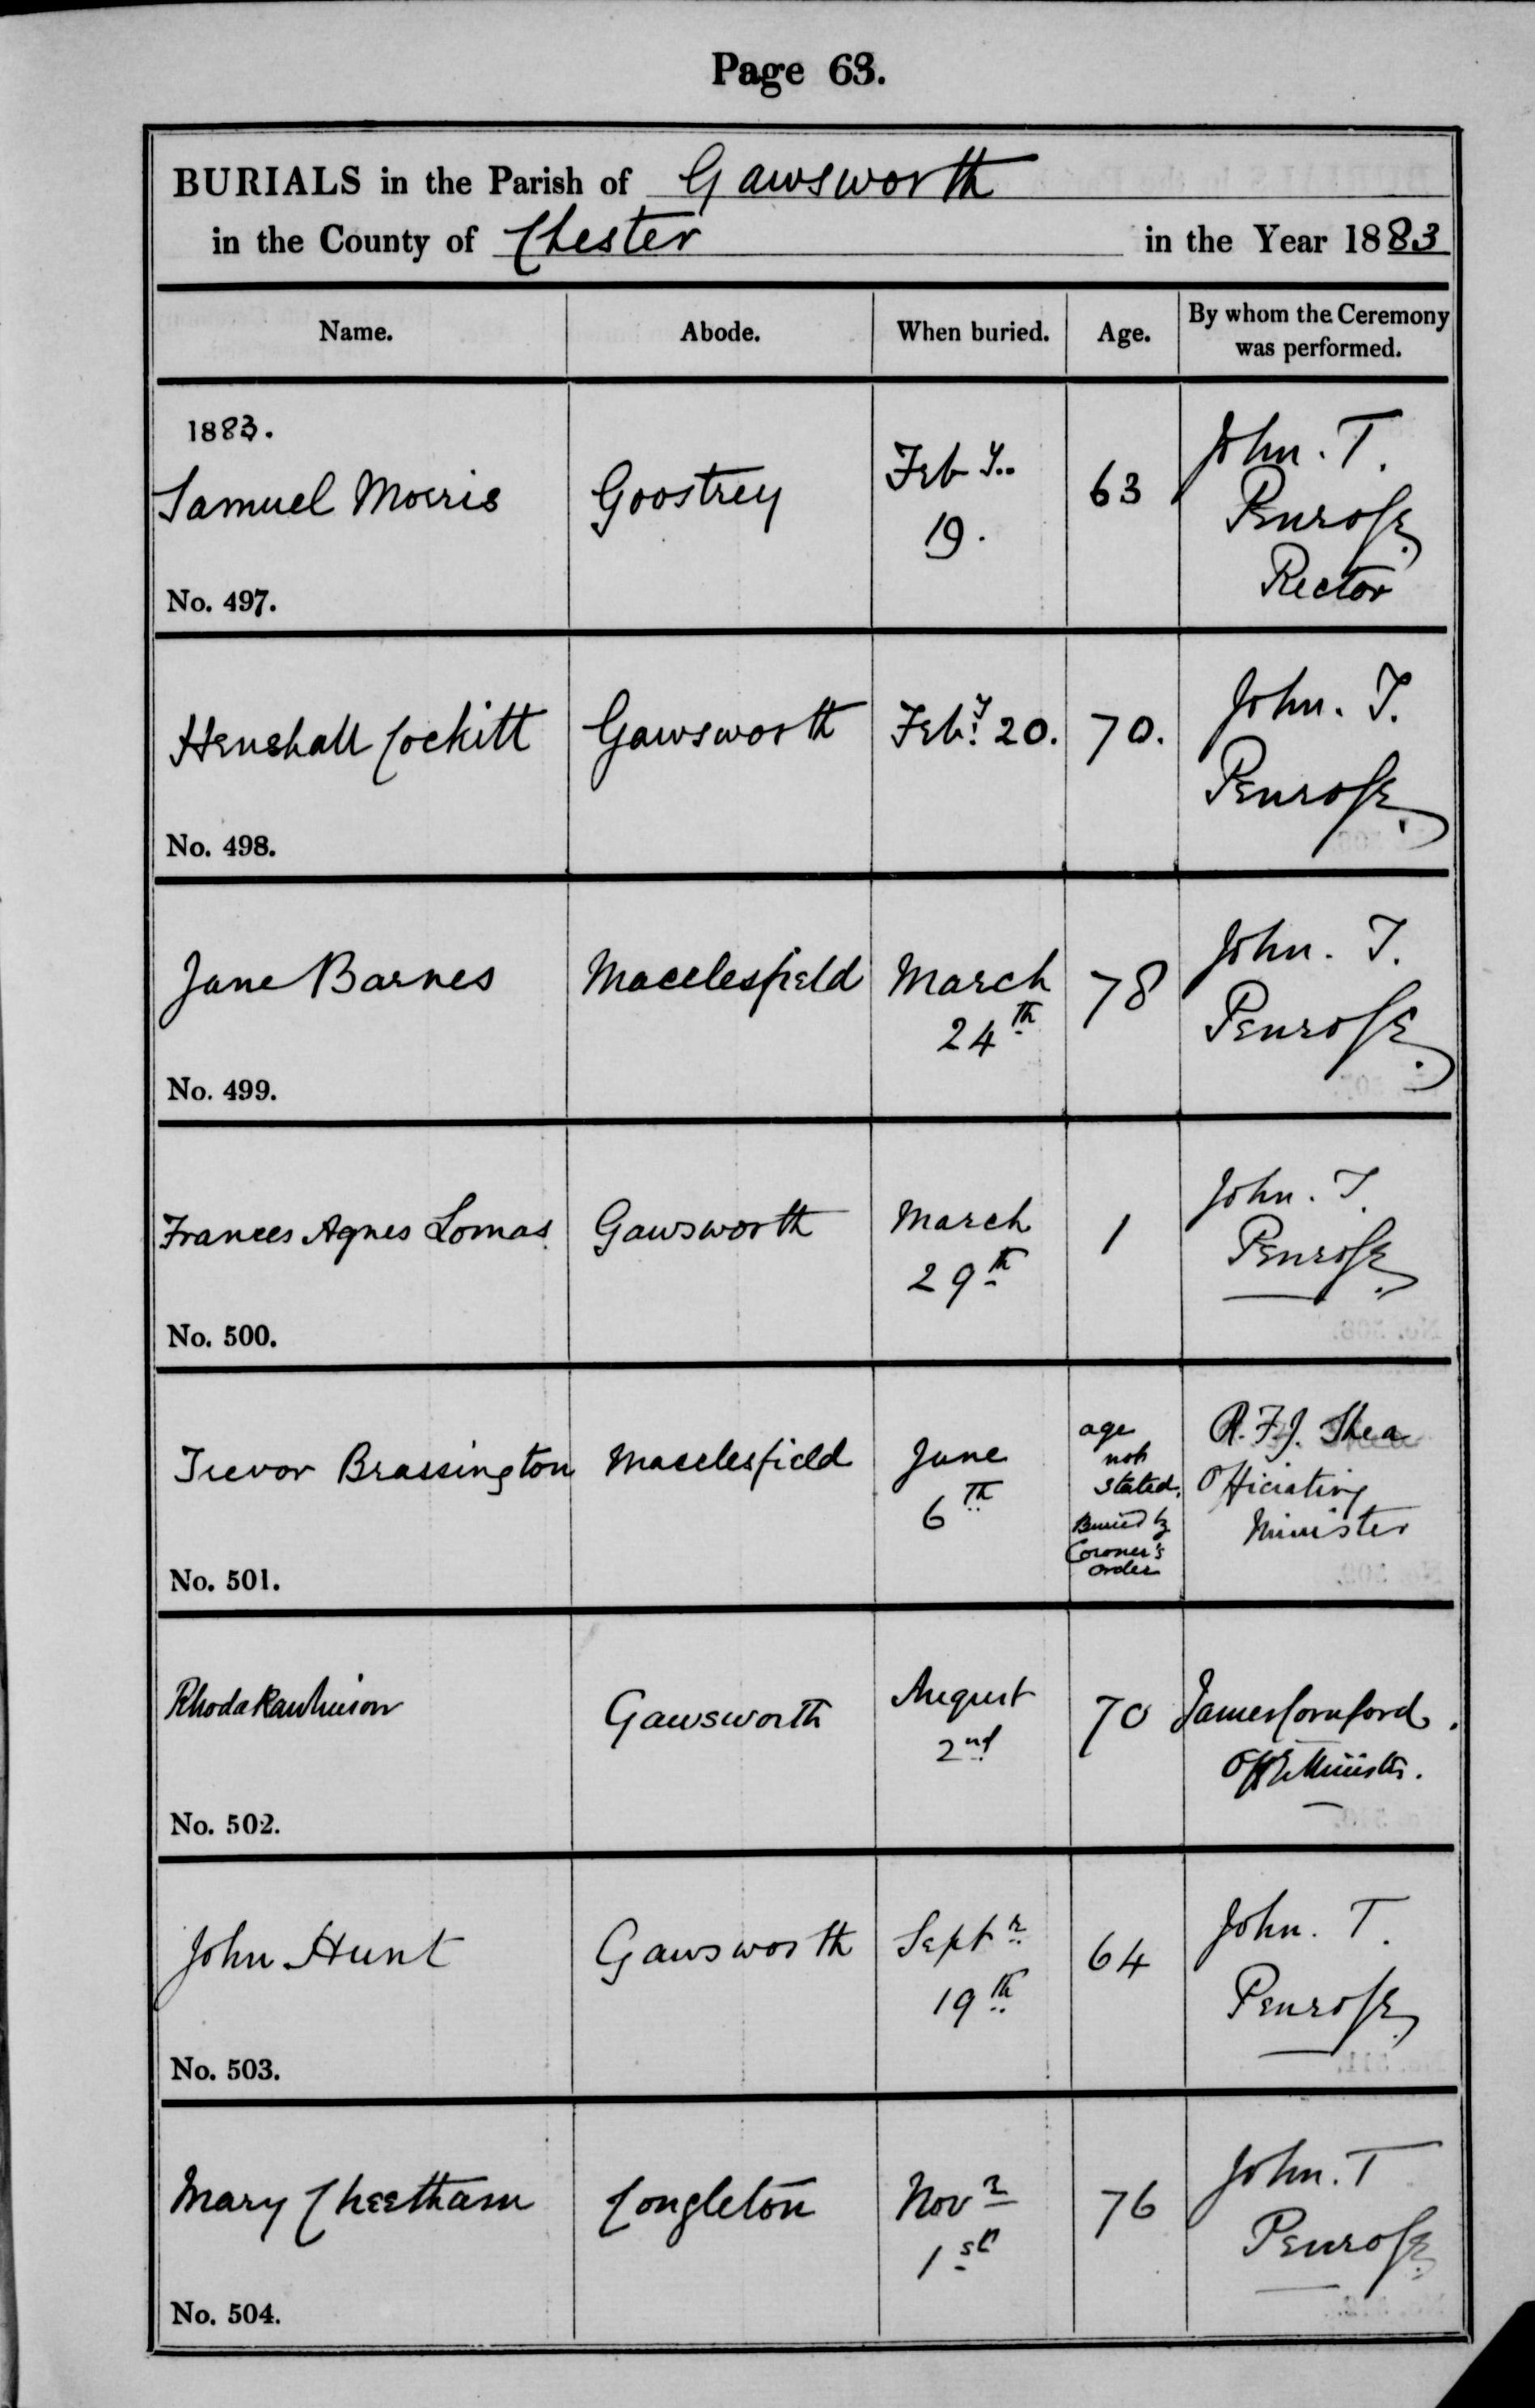 Page 63.
BURIALS in the Parish of Gawsworth
in the County of Chester in the Year 1883
Name. Abode. When buried. Age. By whom the Ceremony was performed.
1883.
Samuel Morris
No. 497.
Goostrey
Feb y..
19.
63
John. T.
Penrose
Rector
Henshall Cockitt
No. 498.
Gawsworth
Feby. 20.
70.
John. T.
Penrose
Jane Barnes
No. 499.
Macclesfield
March
24th
78
John. T.
Penrose
Frances Agnes Lomas
No. 500.
Gawsworth
March
29th
1
John. T.
Penrose
Trevor Brassington
No. 501.
Macclesfield
June
6th
age
not
stated.
Buried by
Coroner's
order
R. F. J. Shea
Officiating
Minister
Rhoda Rawlinson
No. 502.
Gawsworth
August
2nd
70
James Cornford.
Offg Minister.
John Hunt
No. 503.
Gawsworth
Septr
19th
64
John. T.
Penrose
Mary Cheetham
No. 504.
Congleton
Novr
1st
76
John. T
Penrose